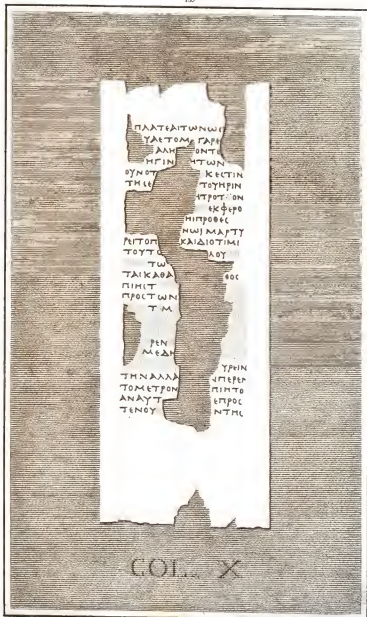 ΠΛΑΤΕΑΙΤΩΝΩΣ
ΥΑΕΤΟΜ ΓΑΡΕ
ΑΛΗ ΟΝΤΕ
ΗΓΙΝ ΗΤΩΝ
ΟΥΝΟΤ ΚΕΣΤΙΝ
ΤΗΣΕ ΤΟΥΗΡΙΝ
ΗΤΡΟΤ ΟΝ
ΕΚΦΕΡΟ
ΗΙΠΡΟΘΕΣ
ΝΩΙΜΑΡΤΥ
ΡΕΙΤΟΠ ΚΑΙΔΙΟΤΙΜΙ
ΤΟΥΤΟ ΛΟΥ
ΤΩ
ΤΑΙΚΑΘΑ ΘΟΣ
ΠΙΗΣΤ
ΠΡΟΣΤΩΝ
ΤΙΜ
ΡΕΝ
ΜΕΔΗ
ΥΡΕΙΝ
ΤΗΝΑΛΛΑ ΥΠΕΡΕΡ
ΤΟΜΕΤΡΟΝ ΠΙΗΤΟ
ΑΝΑΥΤ ΕΠΡΟΣ
ΤΕΝΟΥ ΝΤΗΣ
COL. X